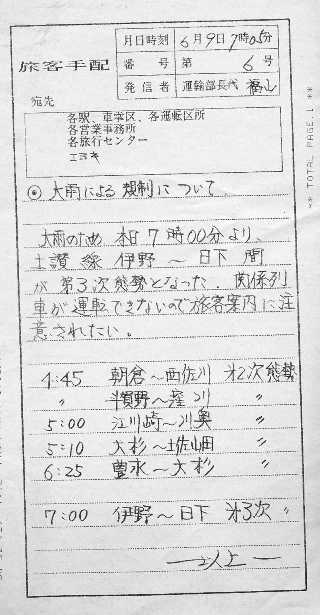 旅客手配
月日時刻 6月9日7時05分
番号 第 6号
発信者 運輸部長代 福山
宛先
各駅、車掌区、各運転区所
各営業事務所
各旅行センター
エヨキ
⦿ 大雨による規制について
大雨のため 本日7時00分より、
土讃線 伊野〜日下間
が第3次態勢となった。関係列
車が運転できないので旅客案内に注
意されたい。
4:45 朝倉〜西佐川 第2次態勢
〃 斗賀野〜窪川 〃
5:00 江川崎〜川奥 〃
5:10 大杉〜土佐山田 〃
6:25 豊永〜大杉 〃
7:00 伊野〜日下 第3次 〃
—以上—
** TOTAL PAGE.1 **